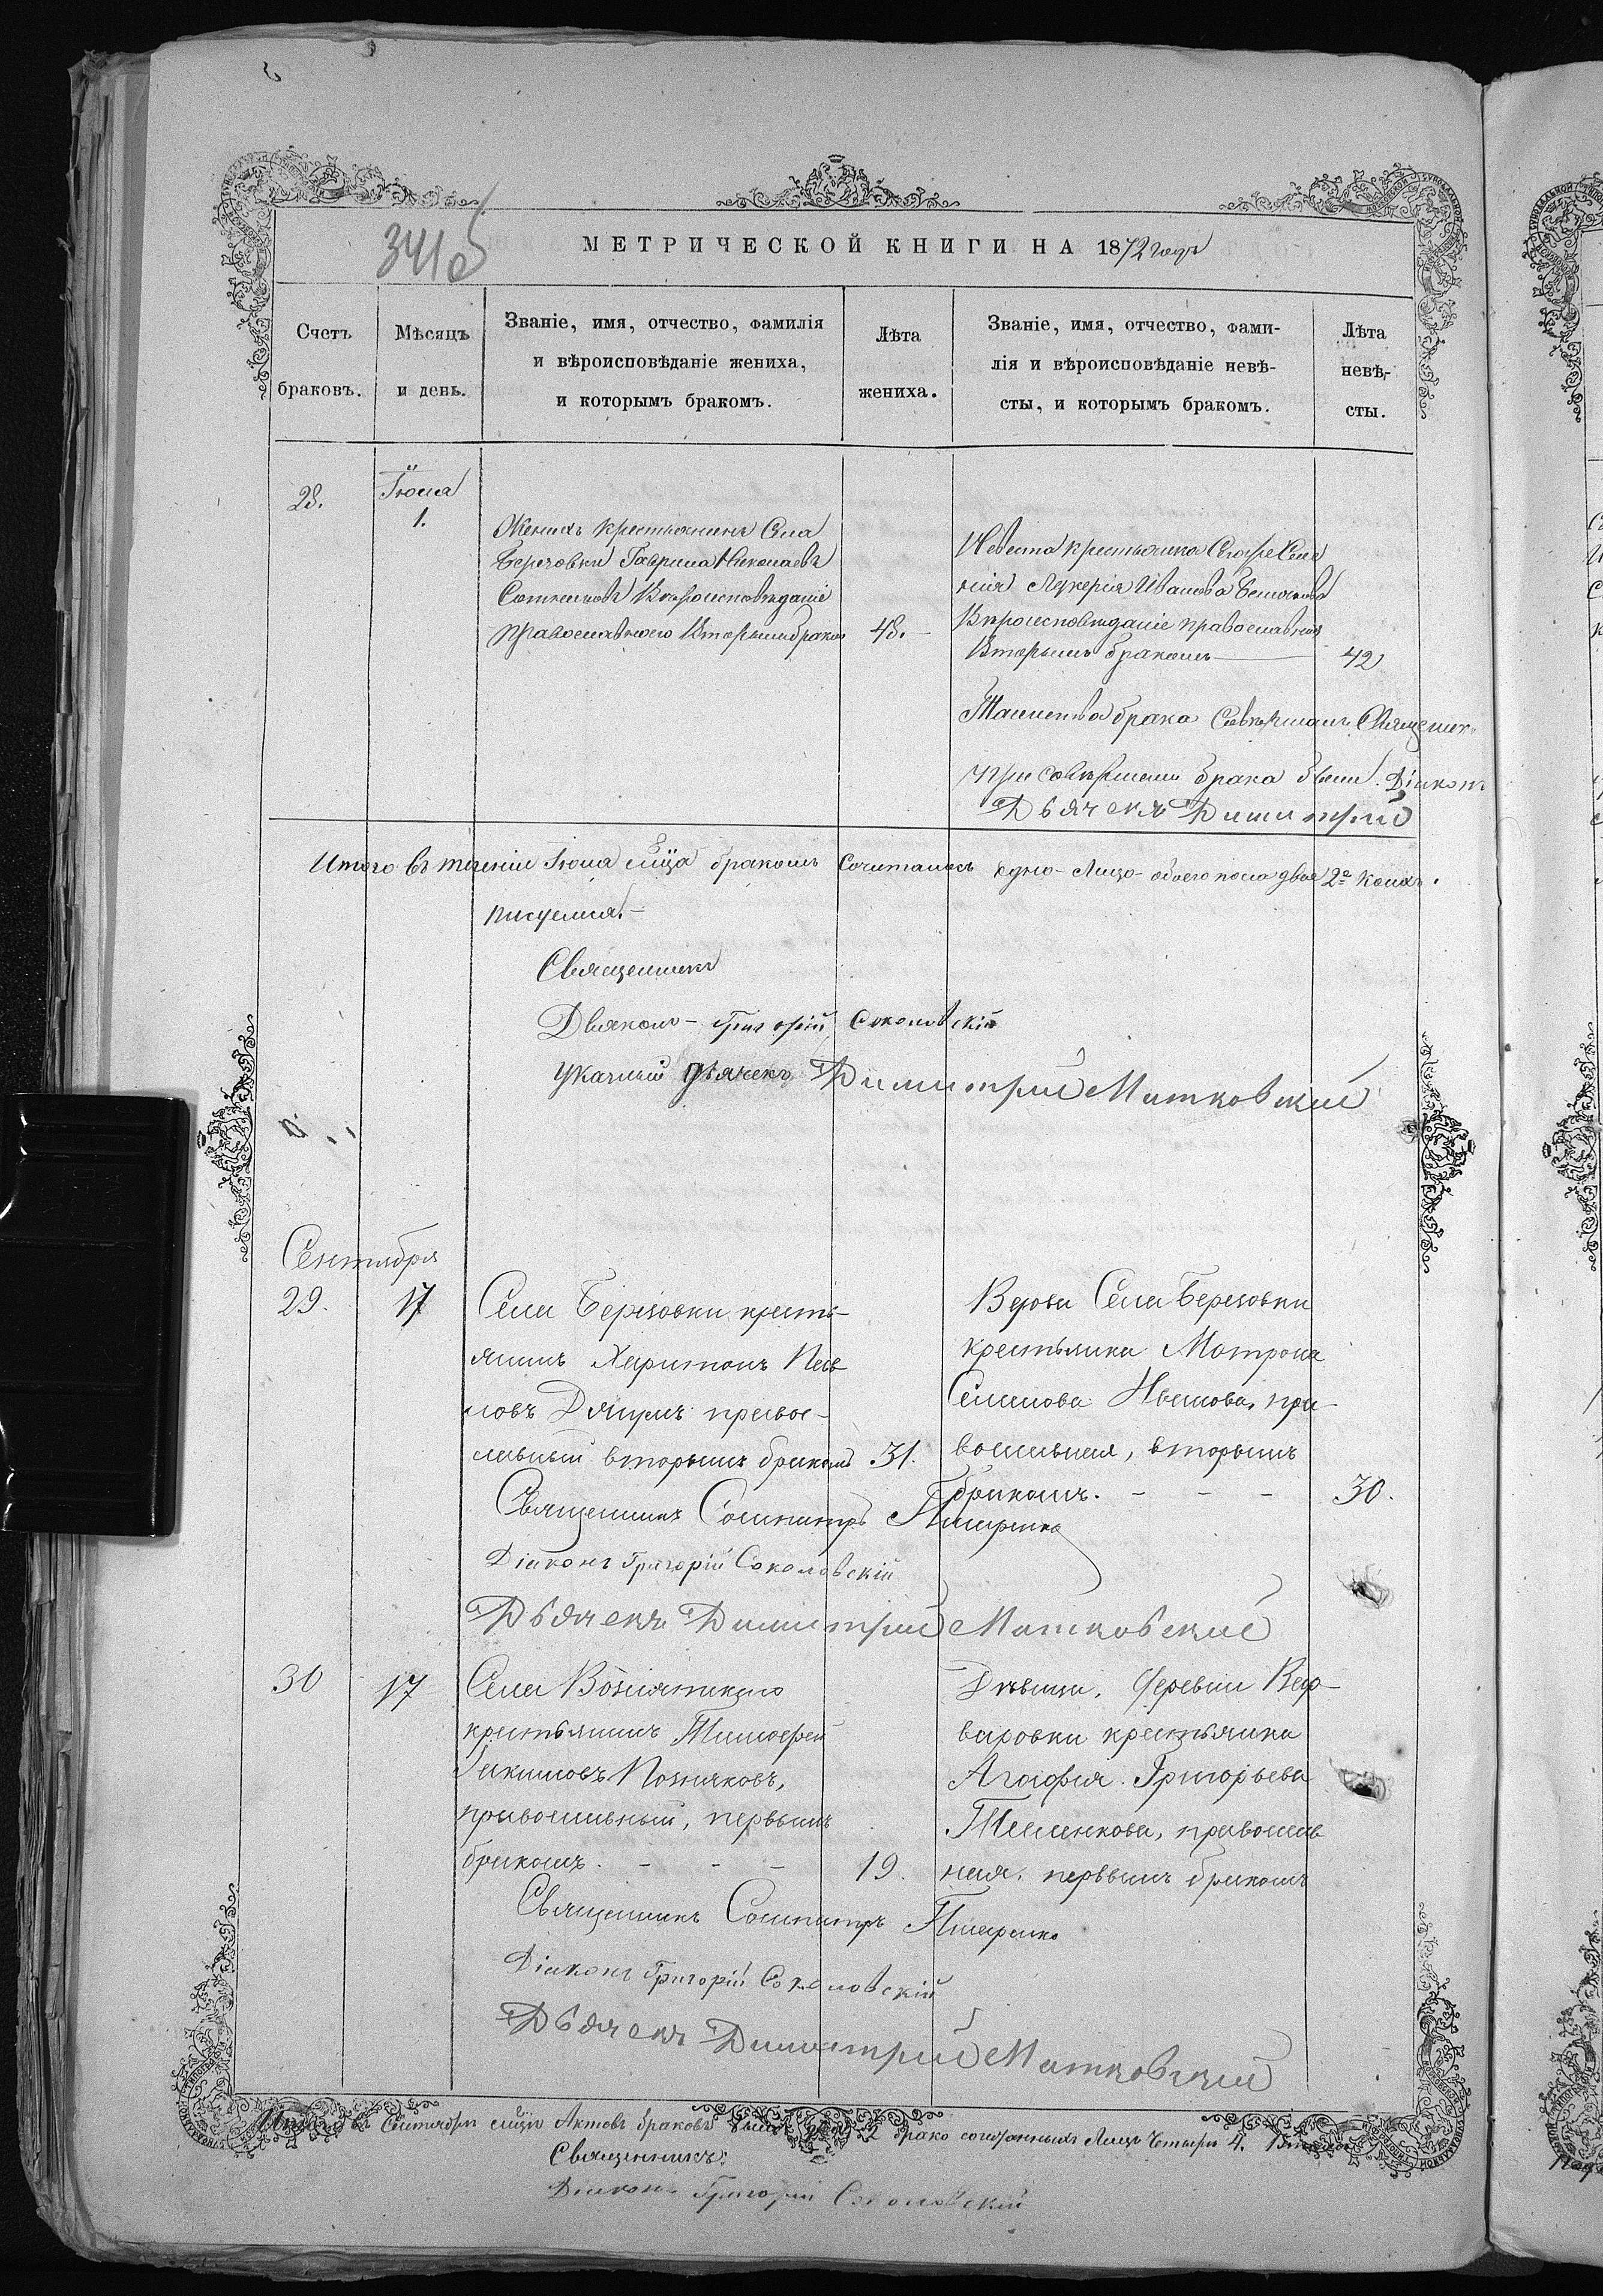 341об
МЕТРИЧЕСКОЙ КНИГИ НА 1872 годъ
Счетъ браковъ.
Мѣсяцъ и день.
Званіе, имя, отчество, фамилія
и вѣроисповѣданіе жениха,
и которымъ бракомъ.
Лѣта жениха.
Званіе, имя, отчество, фами-
лія и вѣроисповѣданіе невѣ-
сты, и которымъ бракомъ.
Лѣта невѣ-
сты.
28.
Іюля
1.
Женихъ крестьянинъ Села
Березовки Гаврила Николаевъ
Вѣроисповѣданіе
православного Вторымъ бракомъ
48.
Невеста крестьянка
Лукерія Иванова
Вѣроисповѣданіе православная
Вторымъ бракомъ
42
Таинство брака Совершалъ Священник
при совершении брака были Діаконъ
Дьячекъ Димитрий
Итого въ теченіи Іюля мѣца бракомъ Сочиталось одно Лицо обоего пола двое 2е
Священникъ
Дьяконъ Григорій Соколовскій
Указный Дьячекъ Димитрий Матковский
Сентября
29.
17
Села Березовки кресть-
янинъ Харитонъ Пав-
ловъ православный вторымъ бракомъ
31.
Вдова Села Березовки
крестьянка Матрона
Семенова Ивашова, пра-
вославная, вторымъ
бракомъ. - - -
30.
Священникъ Сосипатръ
Діаконъ Григорій Соколовскій
Дьячекъ Димитрий Матковский
30
17
Села Вознятскаго
крестьянинъ Тимофей
Якимовъ Позняковъ,
православный, первымъ
бракомъ. - - -
19.
Дѣвица, деревни Вар-
варовки крестьянка
Агафія Григорьева
православ
ная, первымъ бракомъ
Священникъ Сосипатръ
Діаконъ Григорій Соколовскій
Дьячекъ Димитрий Матковский
Итого въ Сентябрѣ мѣцѣ Актовъ браковъ 2 брако сочетанныхъ Лицъ Четыре 4.
Священникъ:
Діаконъ Григорій Соколовскій